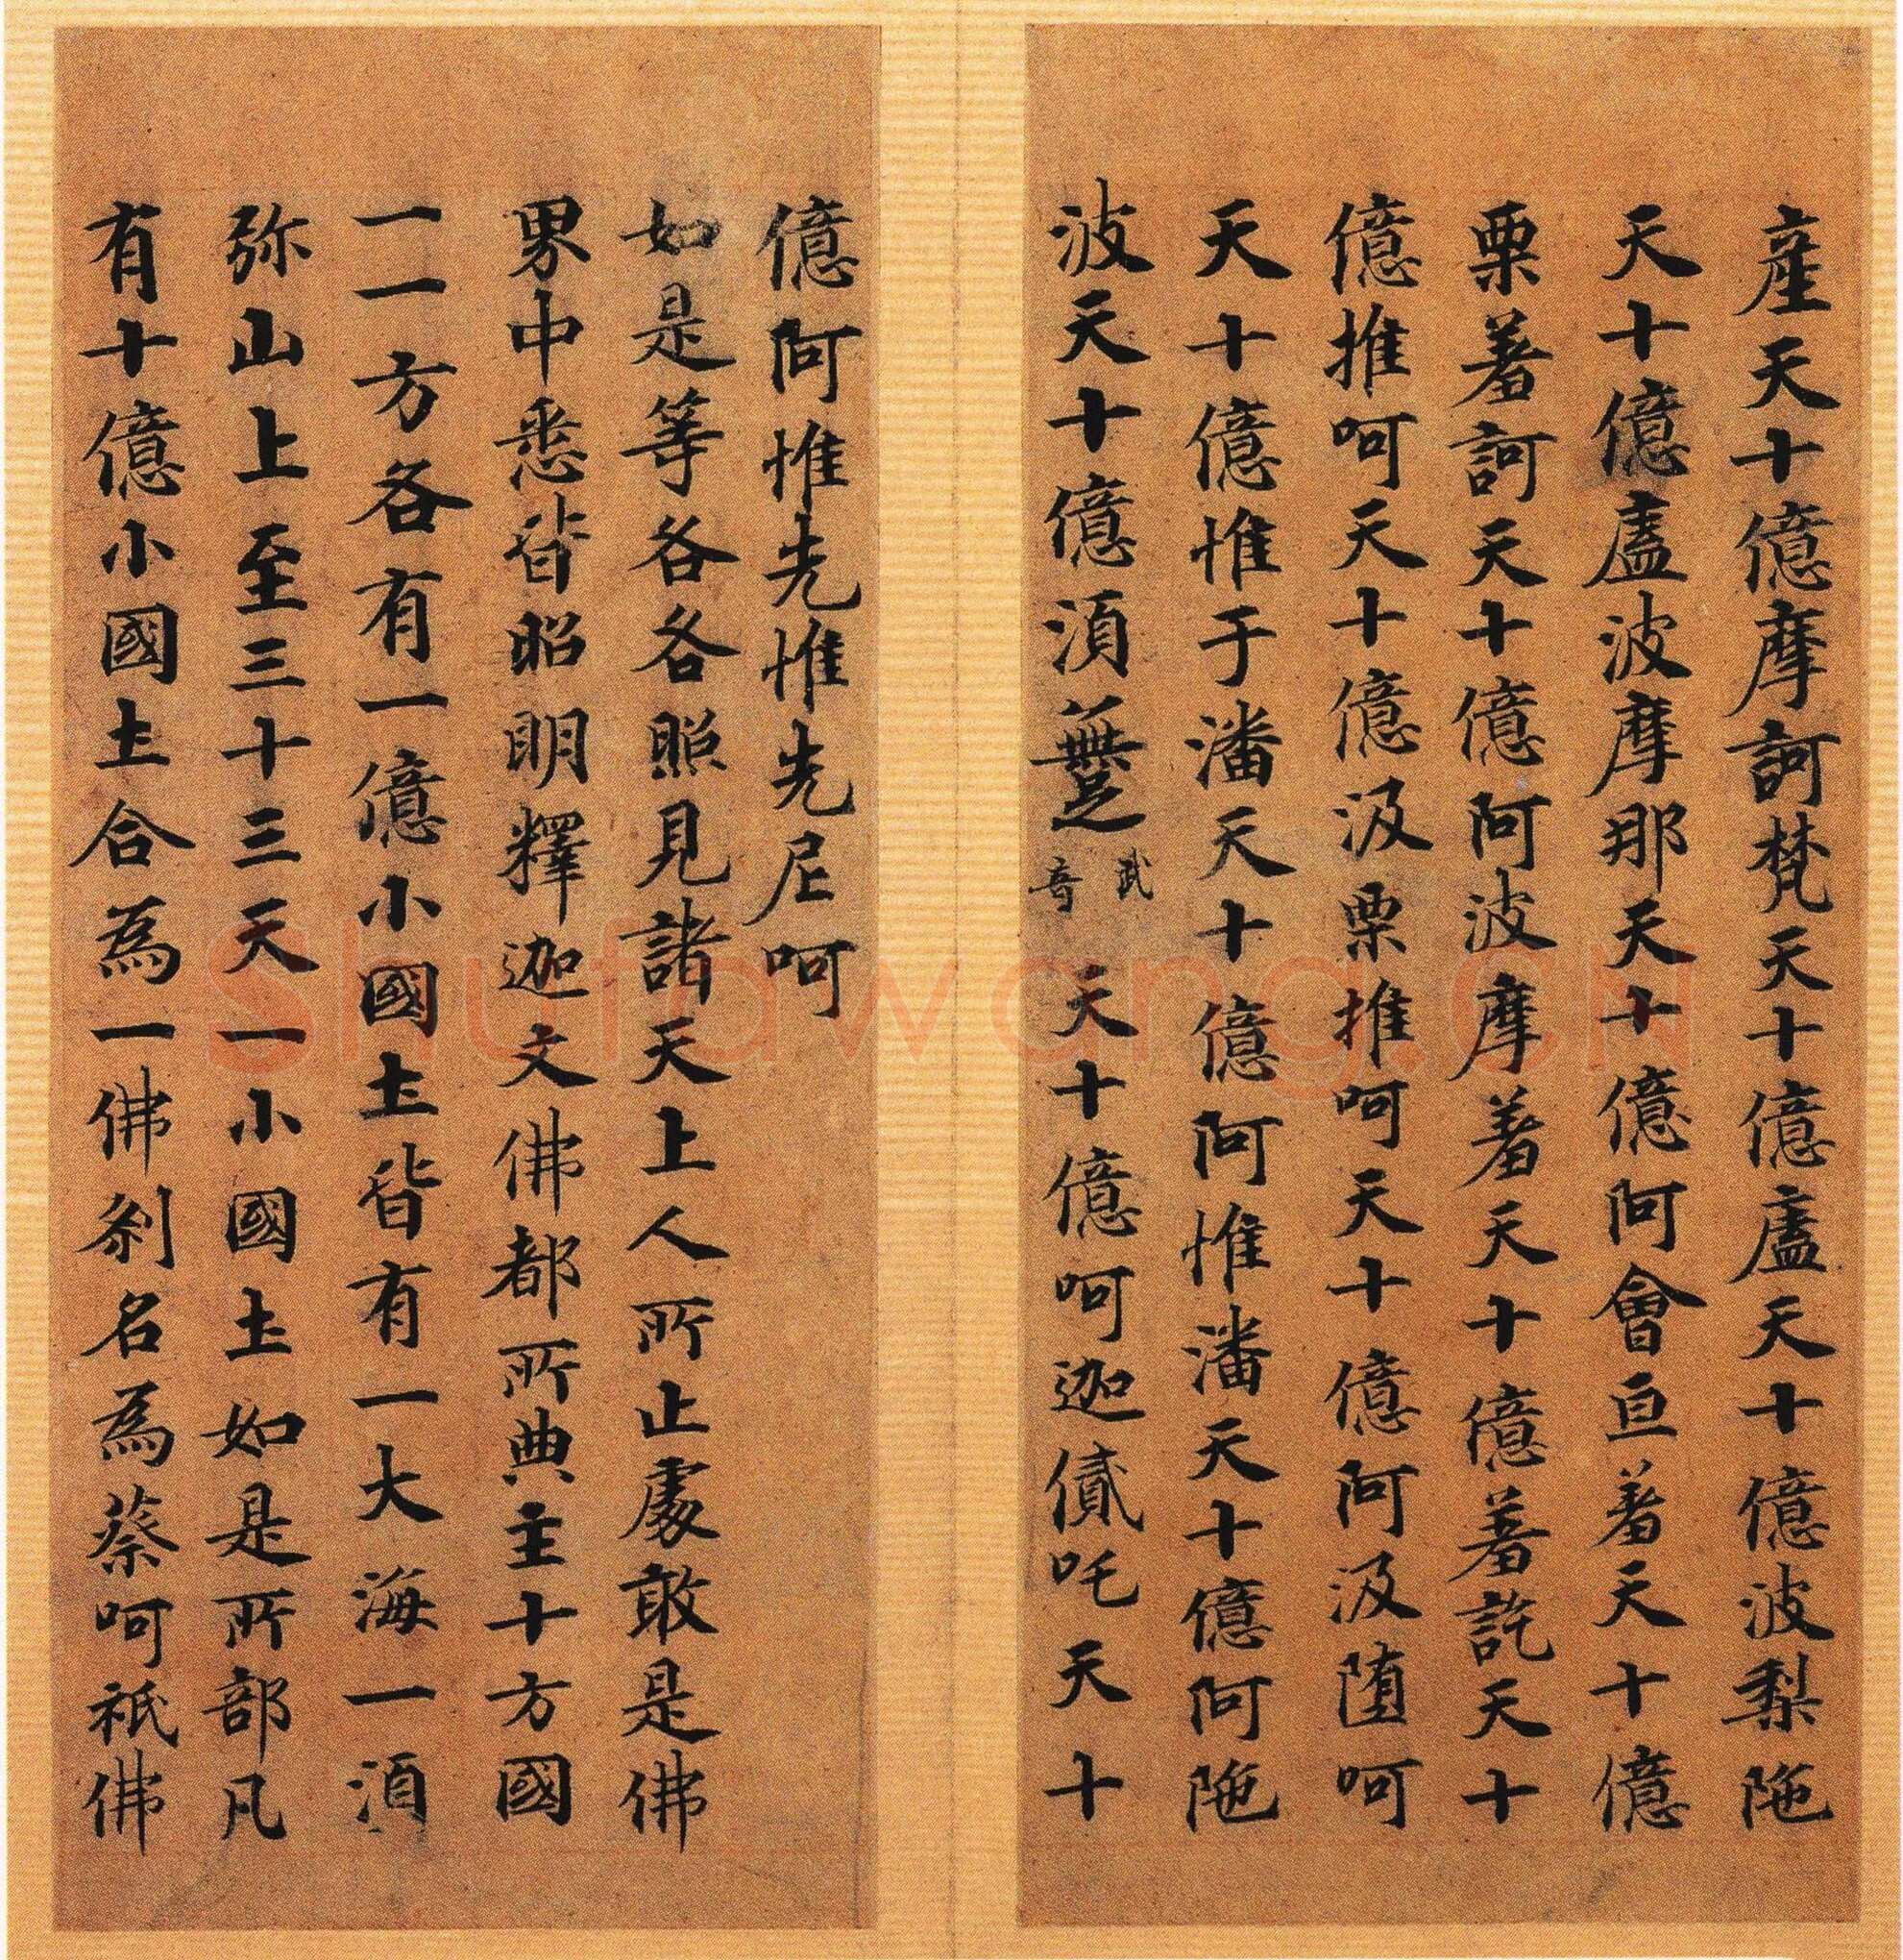 産天十億摩訶梵天十億廬天十億波梨陁
天十億廬波摩那天十億阿會亘著天十億
栗著訶天十億阿波摩著天十億著託天十
億推呵天十億汲栗推呵天十億阿汲墮呵
天十億惟于潘天十億阿惟潘天十億阿陁
波天十億湏
武
竒
天十億呵迦貳吒天十
億阿惟先惟先尼呵
如是等各各照見諸天上人所止處敢是佛
界中悉皆昭明釋迦文佛都所典主十方國
一一方各有一億小國土皆有一大海一湏
弥山上至三十三天一小國土如是所部凡
有十億小國土合為一佛剎名為蔡呵祇佛
Shufawang.cn